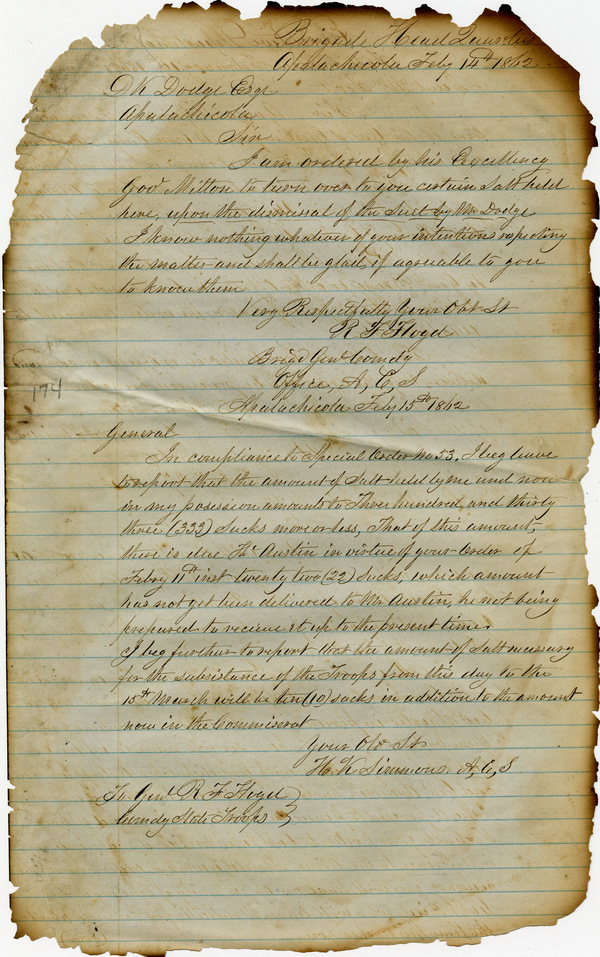 Brigade Head Quarters
Apalachicola Feby 14th 1862
D K Dodge Esqr
Apalachicola
Sir
I am ordered by his Excellency
Govr Milton to turn over to you certain Salt held
here, upon the dismissal of the Suit by Mr Dodge
I know nothing whatever of your intentions respecting
the matter and shall be glad, if agreeable to you
to know them
Very Respectfully Your Obt St
R F Floyd
Brigd Genl Comdg
Office, A, C, S
Apalachicola Feby 15th 1862
General
In compliance to Special Order No 53. I beg leave
to report that the amount of Salt held by me and now
in my posession amounts to Three hundred and thirty
three (333) Sacks more or less, That of this amount,
there is due Austin in virtue of your Order of
Febry 11th inst twenty two (22) Sacks, which amount
has not yet been delivered to Mr Austin, he not being
prepared to recieve it up to the present time.
I beg further to report that the amount of Salt necessary
for the Subsistance of the Troops from this day to the
15th March will be ten (10) sacks in addition to the amount
now in the Commiserat
Your Obt St
H. K Simmons. A, C, S
To Genl R F Floyd
Comdg State Troops
174